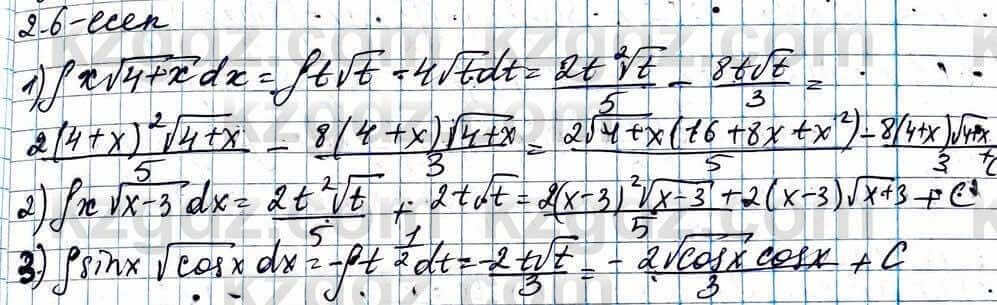 2.6-есеп
1) ∫x√(4+x) dx = ∫t√t - 4√t dt = 2t²√t/5 - 8t√t/3 =
2(4+x)²√(4+x)/5 - 8(4+x)√(4+x)/3 = 2√(4+x)(16+8x+x²)/5 - 8(4+x)√(4+x)/3 + C
2) ∫x√(x-3) dx = 2t²√t/5 + 2t√t = 2(x-3)²√(x-3)/5 + 2(x-3)√(x+3) + C
3) ∫sinx √(cosx) dx = -∫t^(1/2) dt = -2t√t/3 = -2√(cosx) cosx/3 + C